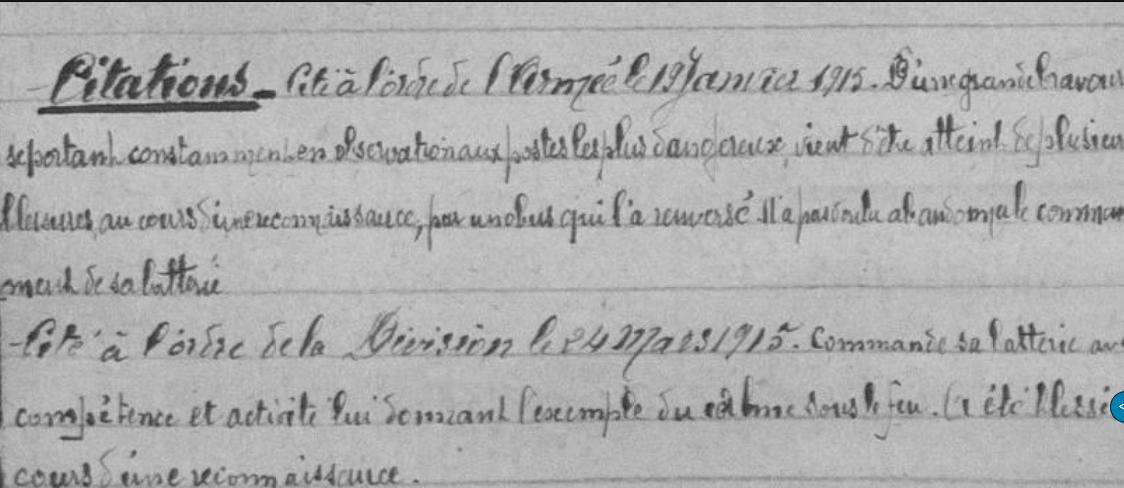 - Citations - Cité à l'ordre de l'Armée le 19 Janvier 1915. D'une grande bravour
se portant constamment en observation aux postes les plus dangereux, vient d'être atteint de plusieur
blessures au cours d'une reconnaissance, par un obus qui l'a renversé. Il a pas voulu abandonner le comman
ment de sa batterie
- Cité à l'ordre de la Division le 24 Mars 1915. Commande sa batterie av
compétence et activité lui donnant l'exemple du calme sous le feu. A été blessé
cours d'une reconnaissance.